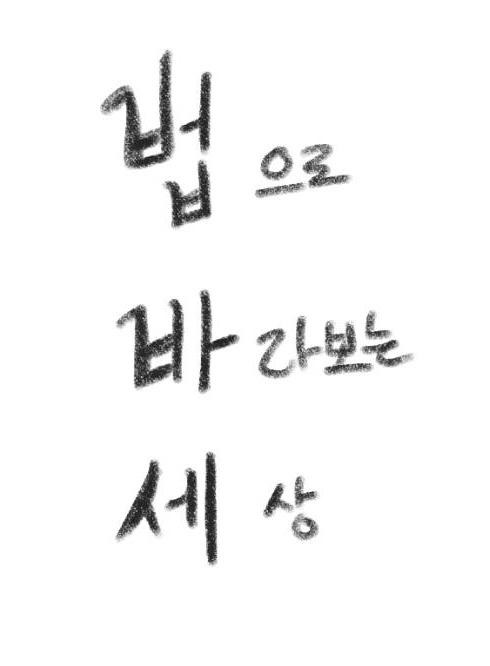 법으로
바라보는
세상